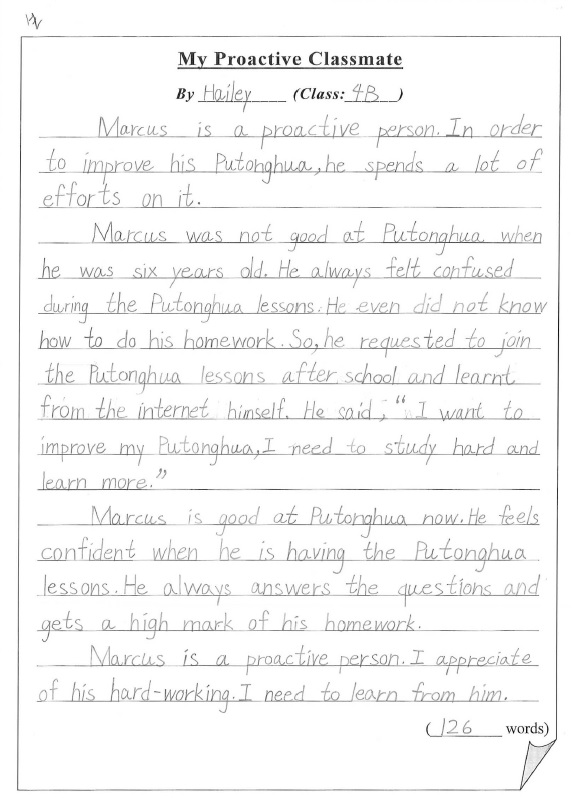 My Proactive Classmate
By Hailey (Class: 4B)
Marcus is a proactive person. In order
to improve his Putonghua, he spends a lot of
efforts on it.
Marcus was not good at Putonghua when
he was six years old. He always felt confused
during the Putonghua lessons. He even did not know
how to do his homework. So, he requested to join
the Putonghua lessons after school and learnt
from the internet himself. He said, "I want to
improve my Putonghua, I need to study hard and
learn more."
Marcus is good at Putonghua now. He feels
confident when he is having the Putonghua
lessons. He always answers the questions and
gets a high mark of his homework.
Marcus is a proactive person. I appreciate
of his hard-working. I need to learn from him.
(126 words)